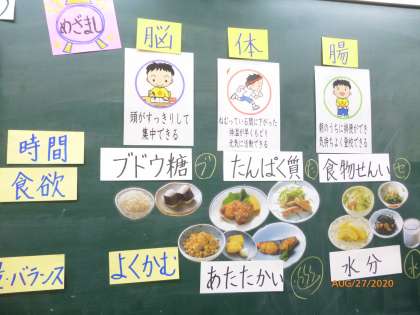 めざまし
脳 体 腸
頭がすっきりして
集中できる
ねむっている間に下がった
体温が早くもどり
元気に活動できる
朝のうちに排便ができ
気持ちよく登校できる
時間
ブドウ糖 たんぱく質 食物せんい
食欲
バランス よくかむ あたたかい 水分
AUG/27/2020